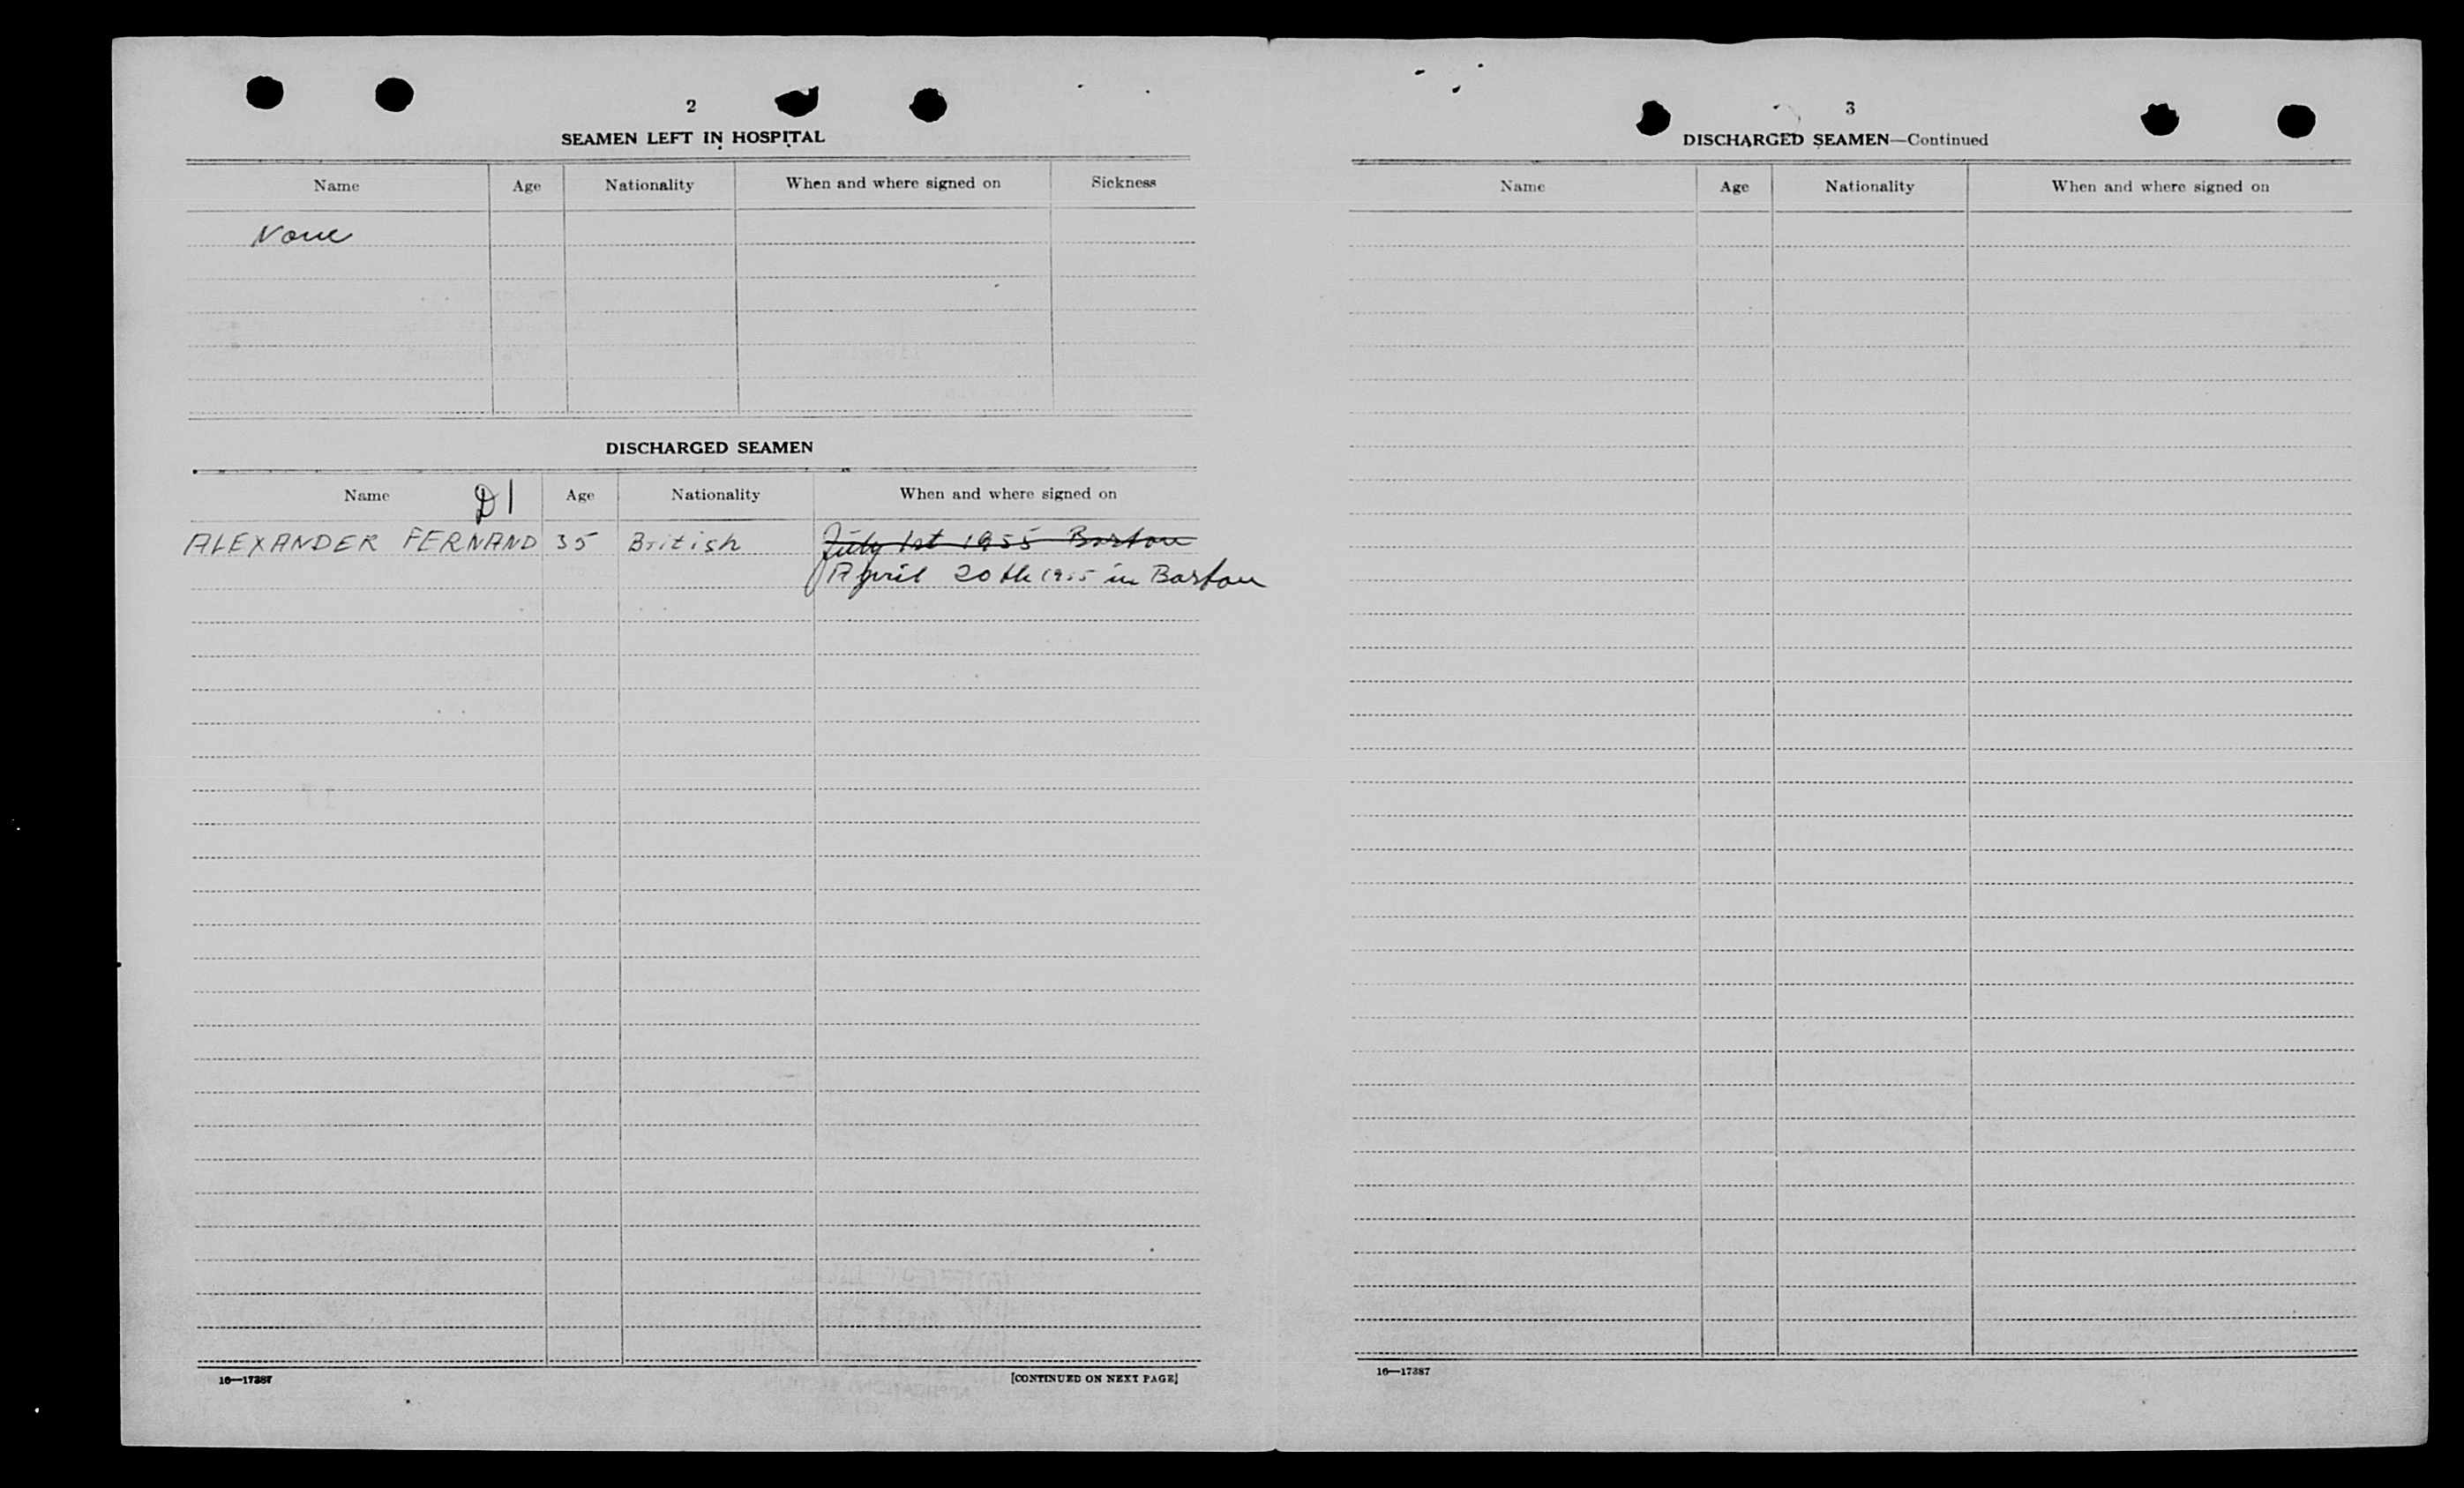 2
SEAMEN LEFT IN HOSPITAL
Name Age Nationality When and where signed on Sickness
None
DISCHARGED SEAMEN
Name D1 Age Nationality When and where signed on
ALEXANDER FERNAND 35 British July 1st 1955 Boston
April 20th 1955 in Boston
16—17387
[CONTINUED ON NEXT PAGE]
3
DISCHARGED SEAMEN—Continued
Name Age Nationality When and where signed on
16—17387